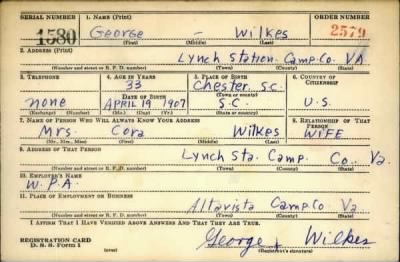 SERIAL NUMBER 1. NAME (Print) ORDER NUMBER
1580 George - Wilkes 2579
(First) (Middle) (Last)
2. ADDRESS (Print)
Lynch Station. Camp. Co. VA
(Number and street or R. F. D. number) (Town) (County) (State)
3. TELEPHONE 4. AGE IN YEARS 5. PLACE OF BIRTH 6. COUNTRY OF CITIZENSHIP
33 Chester, S.C.
DATE OF BIRTH (Town or county)
none APRIL 19 1907 S.C. U.S.
(Exchange) (Number) (Mo.) (Day) (Yr.) (State or country)
7. NAME OF PERSON WHO WILL ALWAYS KNOW YOUR ADDRESS 8. RELATIONSHIP OF THAT PERSON
Mrs. Cora Wilkes WIFE
(Mr., Mrs., Miss) (First) (Middle) (Last)
9. ADDRESS OF THAT PERSON
Lynch Sta. Camp. Co. Va.
(Number and street or R. F. D. number) (Town) (County) (State)
10. EMPLOYER'S NAME
W.P.A.
11. PLACE OF EMPLOYMENT OR BUSINESS
Altavista Camp Co Va
(Number and street or R. F. D. number) (Town) (County) (State)
I AFFIRM THAT I HAVE VERIFIED ABOVE ANSWERS AND THAT THEY ARE TRUE.
REGISTRATION CARD George Wilkes
D. S. S. FORM 1 (over) (Registrant's signature)